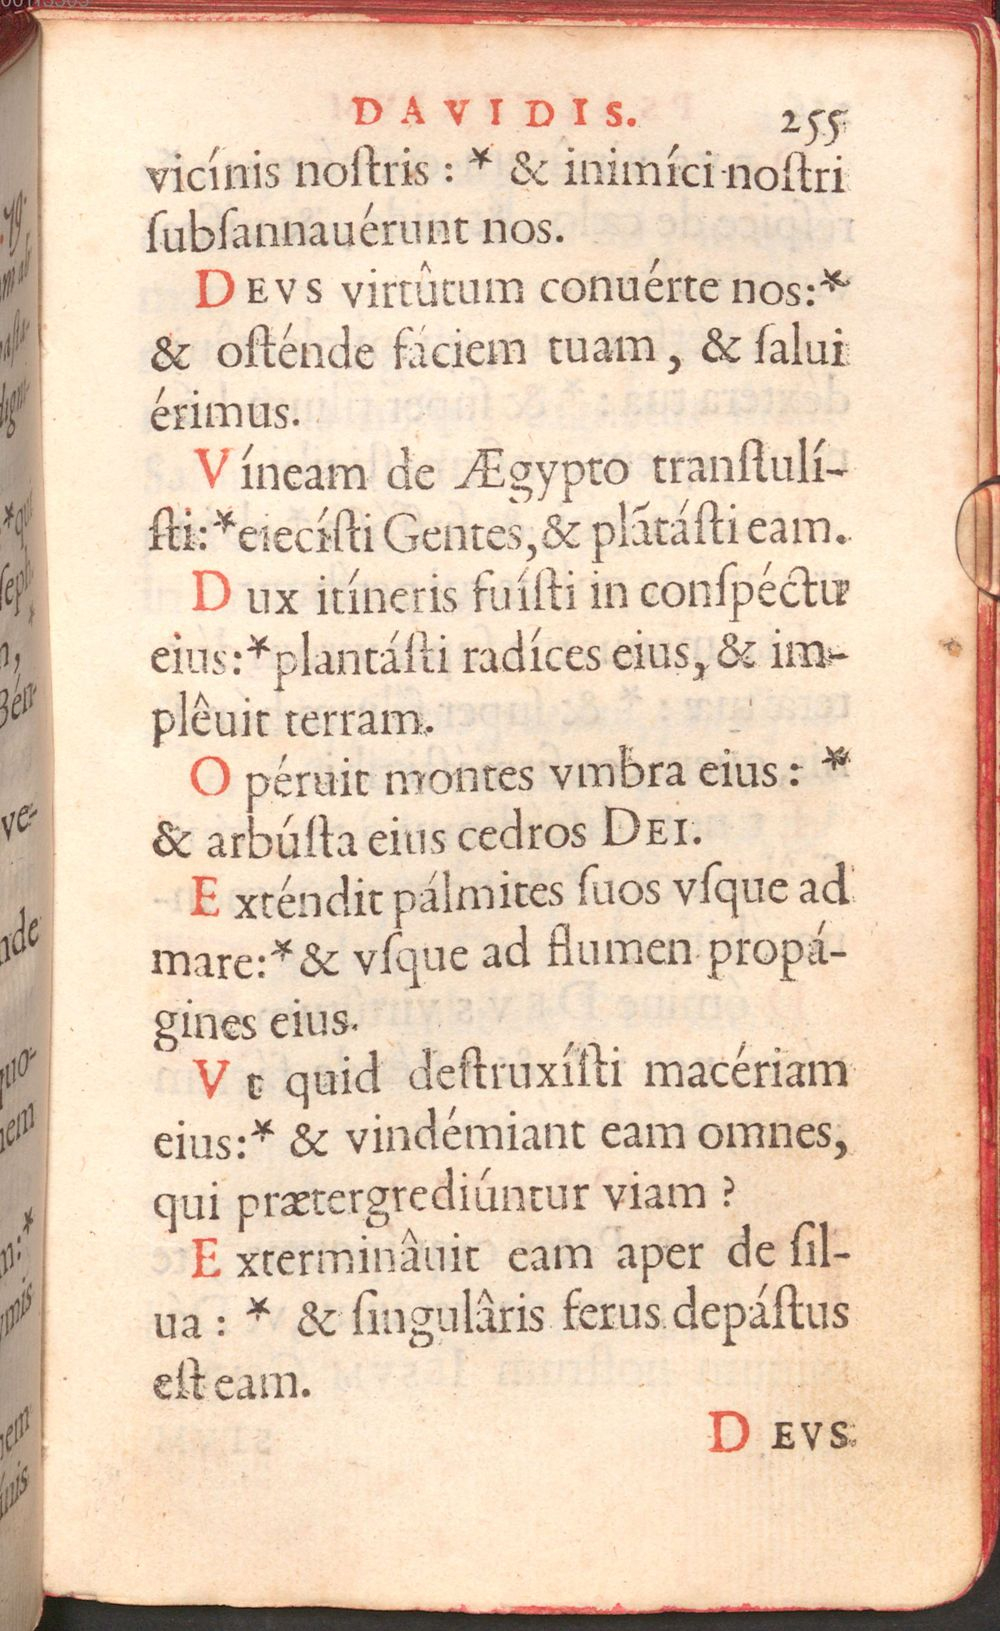 DAVIDIS. 255
vicínis noſtris : * & inimíci noſtri
ſubſannauérunt nos.
DEVS virtûtum conuérte nos:*
& oſténde fáciem tuam, & ſalui
érimus.
Víneam de Ægypto tranſtulí-
ſti:* eiecíſti Gentes, & plãtáſti eam.
Dux itíneris fuíſti in conſpéctu
eius:* plantáſti radíces eius, & im-
plêuit terram.
Opéruit montes vmbra eius : *
& arbúſta eius cedros DEI.
Exténdit pálmites ſuos vſque ad
mare:* & vſque ad flumen propá-
gines eius.
Vt quid deſtruxíſti macériam
eius:* & vindémiant eam omnes,
qui prætergrediúntur viam ?
Exterminâuit eam aper de ſil-
ua : * & ſingulâris ferus depáſtus
eſt eam.
DEVS